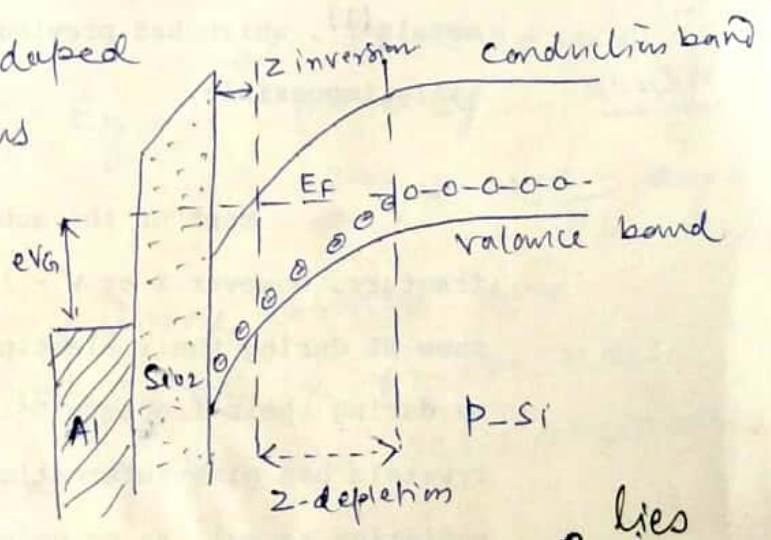 duped
z inversion
conduction band
ns
EF
valance band
eVG
SiO2
Al
p-si
z-depletion
lies